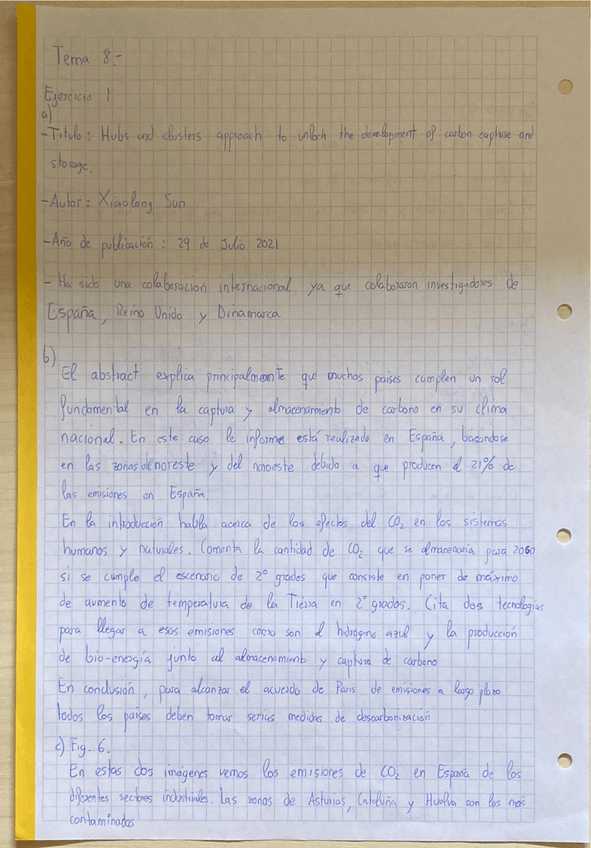 Tema 8.-
Ejercicio 1
a)
-Titulo: Hubs and clusters approach to unlock the development of carbon capture and
storage.
-Autor: Xiaolong Sun
-Año de publicación: 29 de Julio 2021
- Ha sido una colaboración internacional ya que colaboraron investigadores de
España, Reino Unido y Dinamarca
b)
El abstract explica principalmente que muchos paises cumplen un rol
fundamental en la captura y almacenamiento de carbono en su clima
nacional. En este caso le informe está realizado en España, basandose
en las zonas del noreste y del noroeste debido a que producen el 21% de
las emisiones en España.
En la introducción habla acerca de los efectos del CO2 en los sistemas
humanos y naturales. Comenta la cantidad de CO2 que se almacenaria para 2060
si se cumple el escenario de 2° grados que consiste en poner de máximo
de aumento de temperatura de la Tierra en 2° grados. Cita dos tecnologias
para llegar a esas emisiones como son el hidrógeno azul y la producción
de bio-energía junto al almacenamiento y captura de carbono
En conclusión, para alcanzar el acuerdo de Paris de emisiones a largo plazo
todos los paises deben tomar serias medidas de descarbonización
c) Fig. 6.
En estas dos imágenes vemos los emisiones de CO2 en España de los
diferentes sectores industriales. Las zonas de Asturias, Cataluña y Huelva son las mas
contaminadas